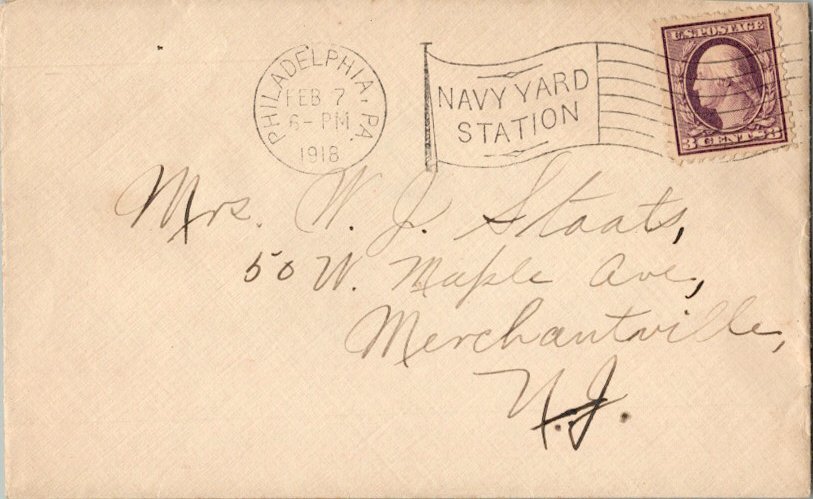 PHILADELPHIA, PA.
FEB 7
6-PM
1918
NAVY YARD
STATION
U.S. POSTAGE
3 CENTS 3
Mrs. W. J. Staats,
50 W. Maple Ave,
Merchantville,
N.J.